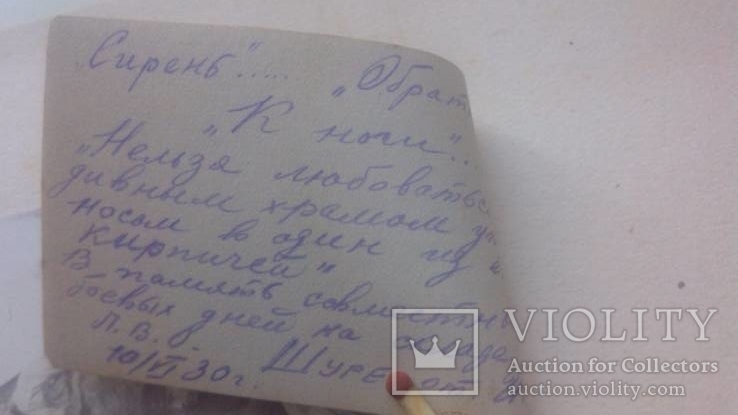 „Сирень"..... „Обрат
„К ночи"...
„Нельзя любоваться
дивным храмом
носом в один из
кирпичей"
В память совместн
боевых дней на
Л.В. Шуре от
10/VI 30 г.
VIOLITY
Auction for Collectors
auction.violity.com